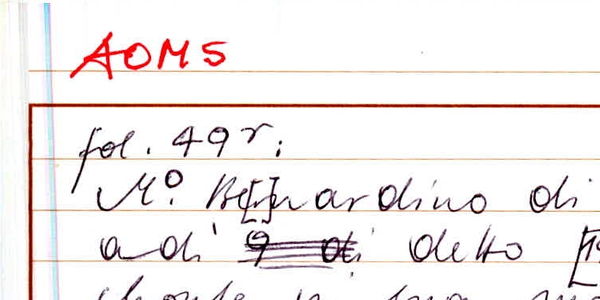 AOMS
fol. 49r:
Mº. Be[r]nardino di
adi' 9 di detto [1